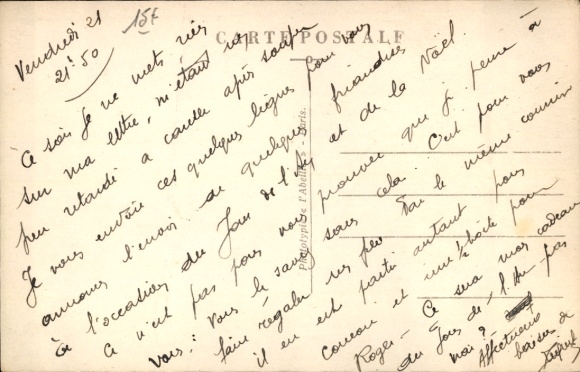 CARTE POSTALE
Phototypie de l'Abeille - Paris.
15F
Vendredi 21
21h50
Ce soir je ne mets rien
sur ma lettre, m'étant un
peu retardé a cause après souper
Je vous envoie ces quelques lignes pour vous
annoncer l'envoi de quelques friandises
à l'occasion du Jour de l'An et de la Noël.
Ce n'est pas pour vous prouver que je pense à
vous: Vous le savez sans cela. C'est pour vous
faire régaler un peu Par le même courrier
il en est parti autant pour
Coucou et une boîte pour
Roger - Ce sera mon cadeau
du Jour de l'An - pas
vrai?
Affectueux
baisers de